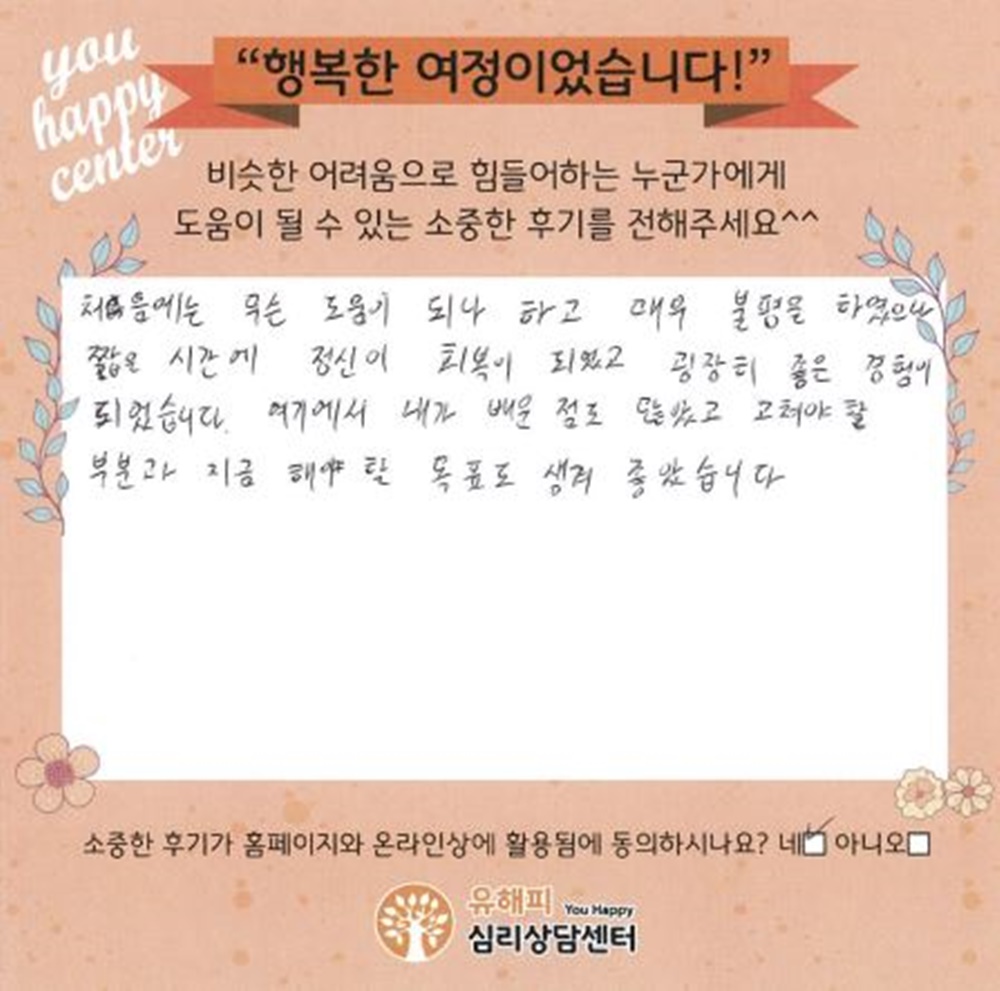 you
happy
center
“행복한 여정이었습니다!”
비슷한 어려움으로 힘들어하는 누군가에게
도움이 될 수 있는 소중한 후기를 전해주세요^^
처음에는 무슨 도움이 되나 하고 매우 불평을 하였으나
짧은 시간에 정신이 회복이 되었고 굉장히 좋은 경험이
되었습니다. 여기에서 내가 배운 점도 많았고 고쳐야 할
부분과 지금 해야 할 목표도 생겨 좋았습니다
소중한 후기가 홈페이지와 온라인상에 활용됨에 동의하시나요? 네☑ 아니오☐
유해피 You Happy
심리상담센터